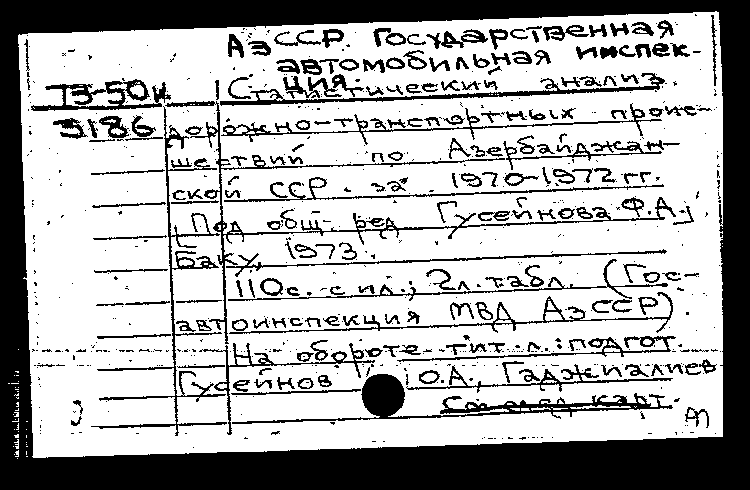 АзССР. Государственная
автомобильная инспек-
ция.
73-50к Статистический анализ
3186 дорожно-транспортных проис-
шествий по Азербайджан-
ской ССР за 1970-1972 гг.
[Под общ. ред Гусейнова Ф.А.]
Баку, 1973.
110с. с ил.; 2л. табл. (Гос-
автоинспекция МВД АзССР).
На обороте тит. л.: подгот.
Гусейнов О.А., Гаджиалиев
карт.